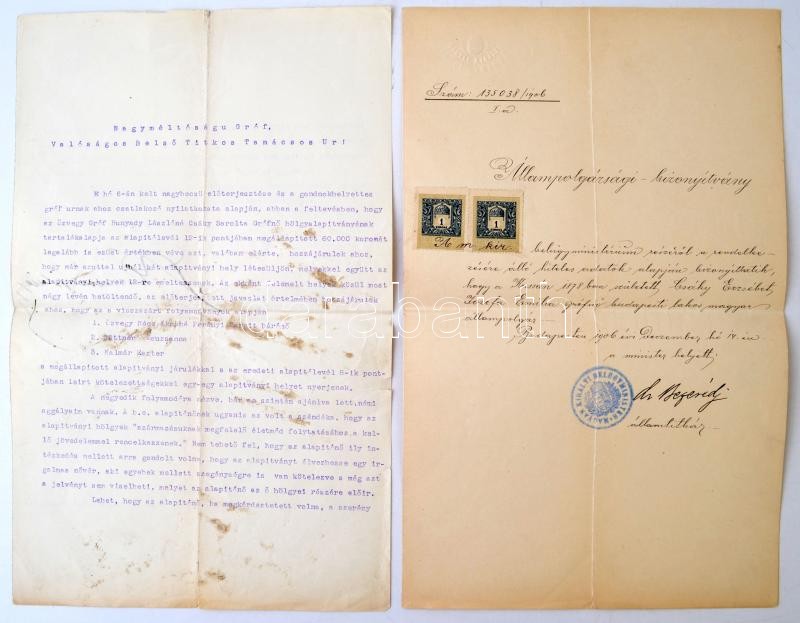 Nagyméltóságu Gróf,
Valóságos Belső Titkos Tanácsos Ur!
E hó 6-án kelt nagybecsü előterjesztése és a gondnokhelyettes
gróf urnak ahoz csatlakozó nyilatkozata alapján, abban a feltevésben, hogy
az özvegy Gróf Hunyady Lászlóné Csáky Sarolta Grófnő hölgyalapitványának
tartalékalapja az alapitólevél 12-ik pontjában megállapitott 60,000 koronát
legalább is ezüst értékben véve azt, valóban elérte, hozzájárulok ahoz,
hogy már ezuttal uj alapitványi hely létesüljön, melyekkel együtt az
alapitványi helyek 12-re emeltetnek. Az ekként felemelt helyek közül most
négy lévén betöltendő, az előterjesztett javaslat értelmében hozzájárulok
ahoz, hogy a visszazárt folyamodványok alapján
1. Özvegy Rácz Jánosné Perényi Margit bárónő
2. Dittmár Zsuzsanna
3. Kalmár Eszter
a megállapitott alapitványi járulékkal s az eredeti alapitólevél 8-ik pont-
jában leirt kötelezettségekkel egy-egy alapitványi helyet nyerjenek.
A negyedik folyamodóra nézve, bár ez szintén ajánlva lett, némi
aggályaim vannak. A b.e. alapitónőnek ugyanis az volt a szándéka, hogy az
alapitványi hölgyek "származásuknak megfelelő életmód folytatásához a kel-
lő jövedelemmel rendelkezzenek." Nem tehető fel, hogy az alapitónő ily in-
tézkedés mellett arra gondolt volna, hogy az alapitványt élvezhesse egy ir-
galmas nővér, aki egyebek mellett szegénységre is van kötelezve s még azt
a jelvényt sem viselheti, melyet az alapitónő az ő hölgyei részére előir.
Lehet, hogy az alapitónő, ha megkérdeztetett volna, a szerény
Szám: 135038/1906
I-a
Állampolgársági-bizonyitvány
1
1
A m. kir.
belügyministerium részéről a rendelke-
zésére álló hiteles adatok alapján bizonyittatik,
hogy a 1878 ban született Csáky Erzsébet
Jozefa Emilia grófnő budapesti lakos, magyar
állampolgár.
Budapesten 1906 évi December hó 14-én
a minister helyett:
MAGYAR KIRÁLYI BELÜGYMINISTER
dr Bezerédj
államtitkár
darabanth